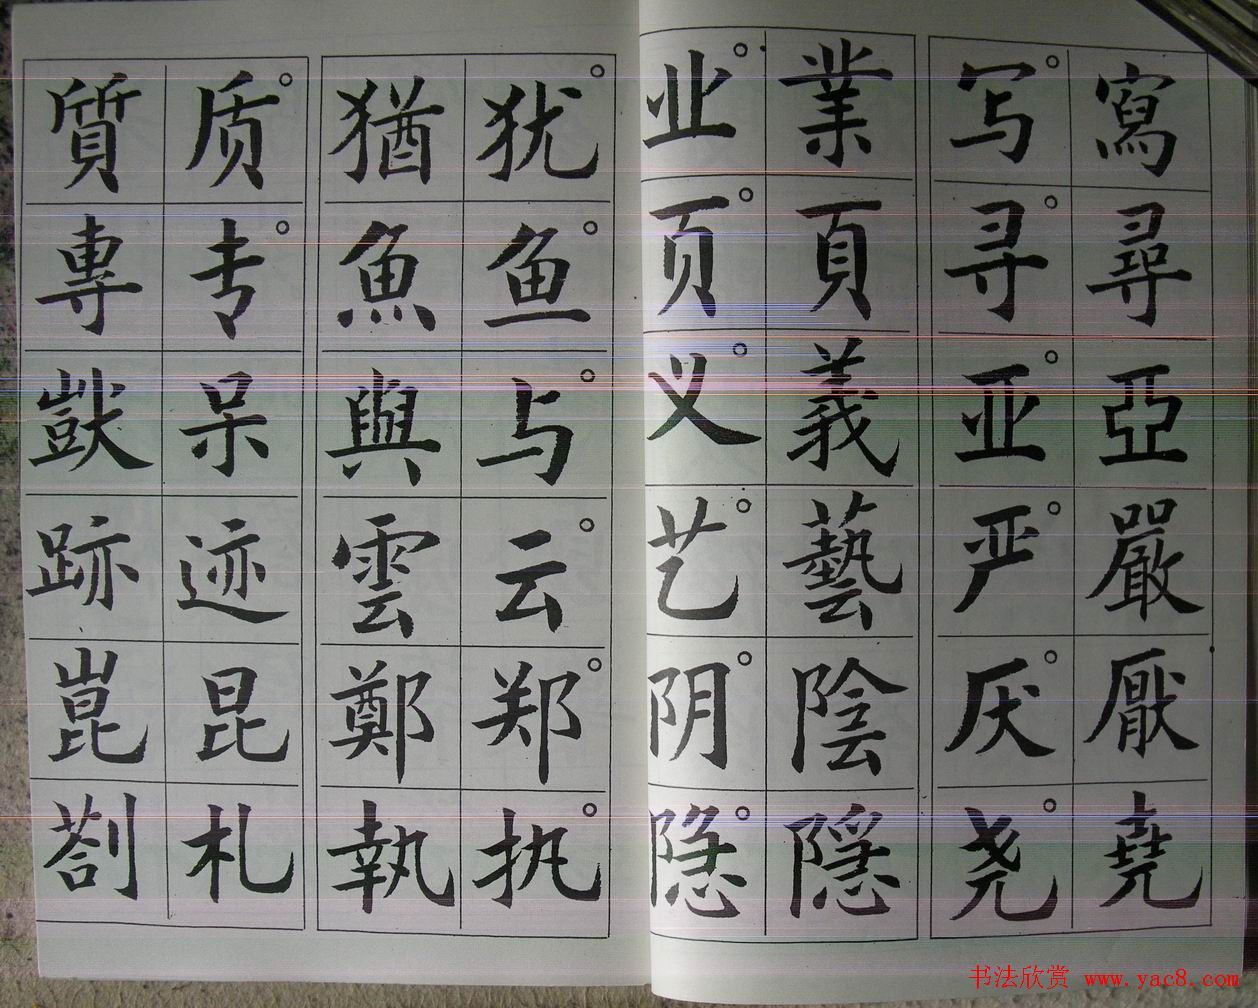 寫尋亞嚴厭堯
写寻亚严厌尧
業頁義藝陰隱
业页义艺阴隐
犹鱼与云郑执
猶魚與雲鄭執
质专呆迹昆札
質專獃跡崑剳
书法欣赏 www.yac8.com